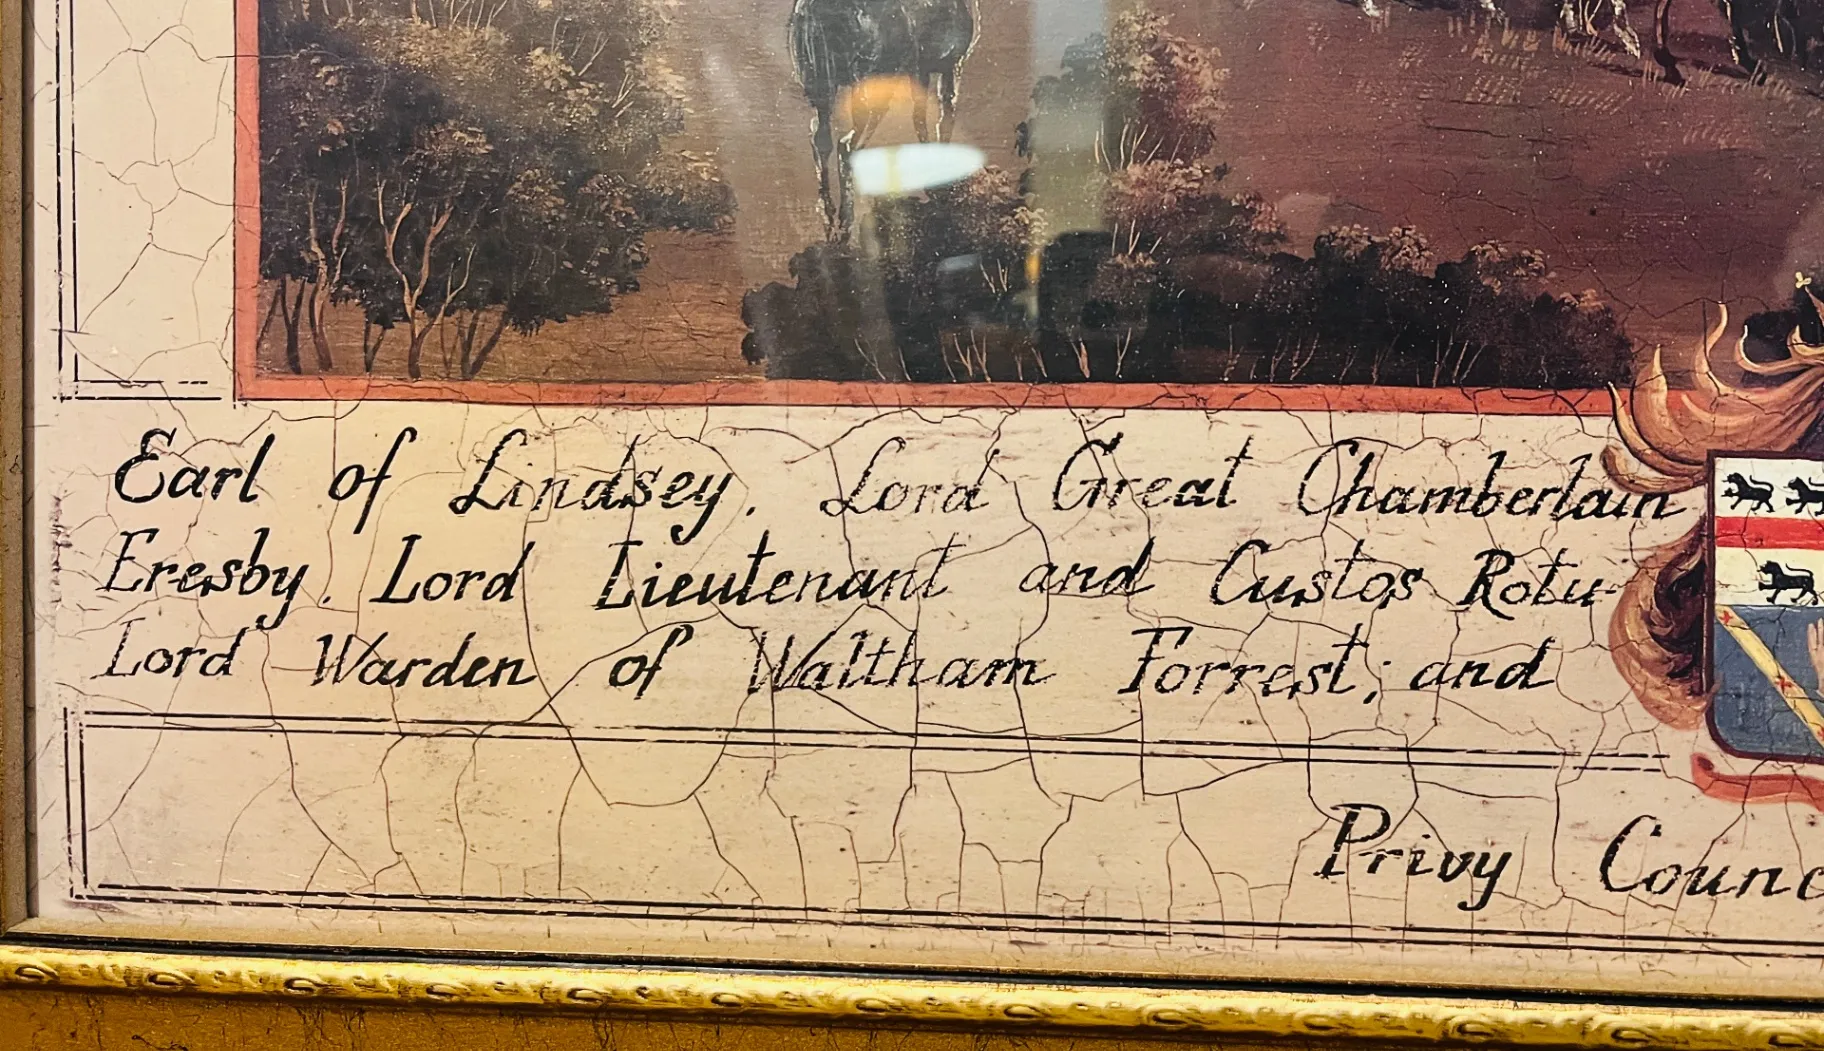 Earl of Lindsey. Lord Great Chamberlain
Eresby. Lord Lieutenant and Custos Rotu-
Lord Warden of Waltham Forrest; and
Privy Counc